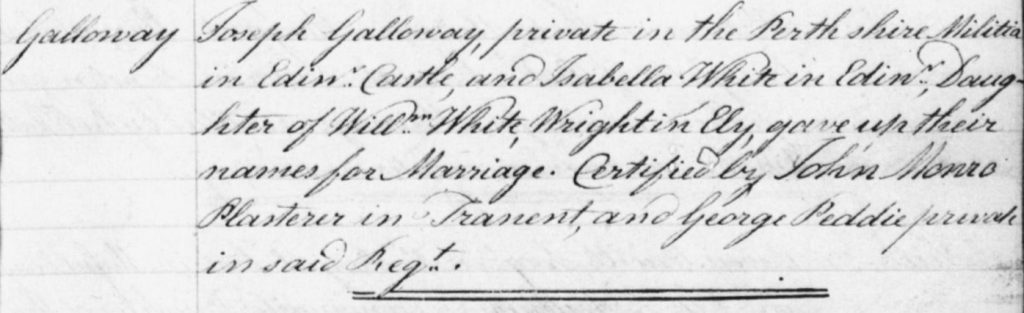 Galloway Joseph Galloway, private in the Perth shire Militia
in Edinr. Castle, and Isabella White in Edinr., Daug-
hter of Willm. White, Wright in Ely, gave up their
names for Marriage. Certified by John Monro
Plasterer in Tranent, and George Peddie private
in said Regt.